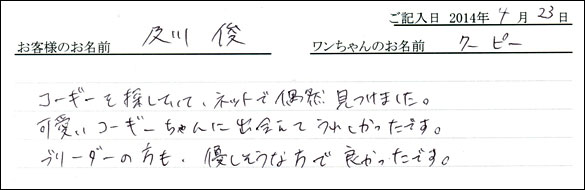 ご記入日 2014年 4月 23日
お客様のお名前 及川 俊 ワンちゃんのお名前 クーピー
コーギーを探していて、ネットで偶然見つけました。
可愛いコーギーちゃんに出会えてうれしかったです。
ブリーダーの方も、優しそうな方で良かったです。